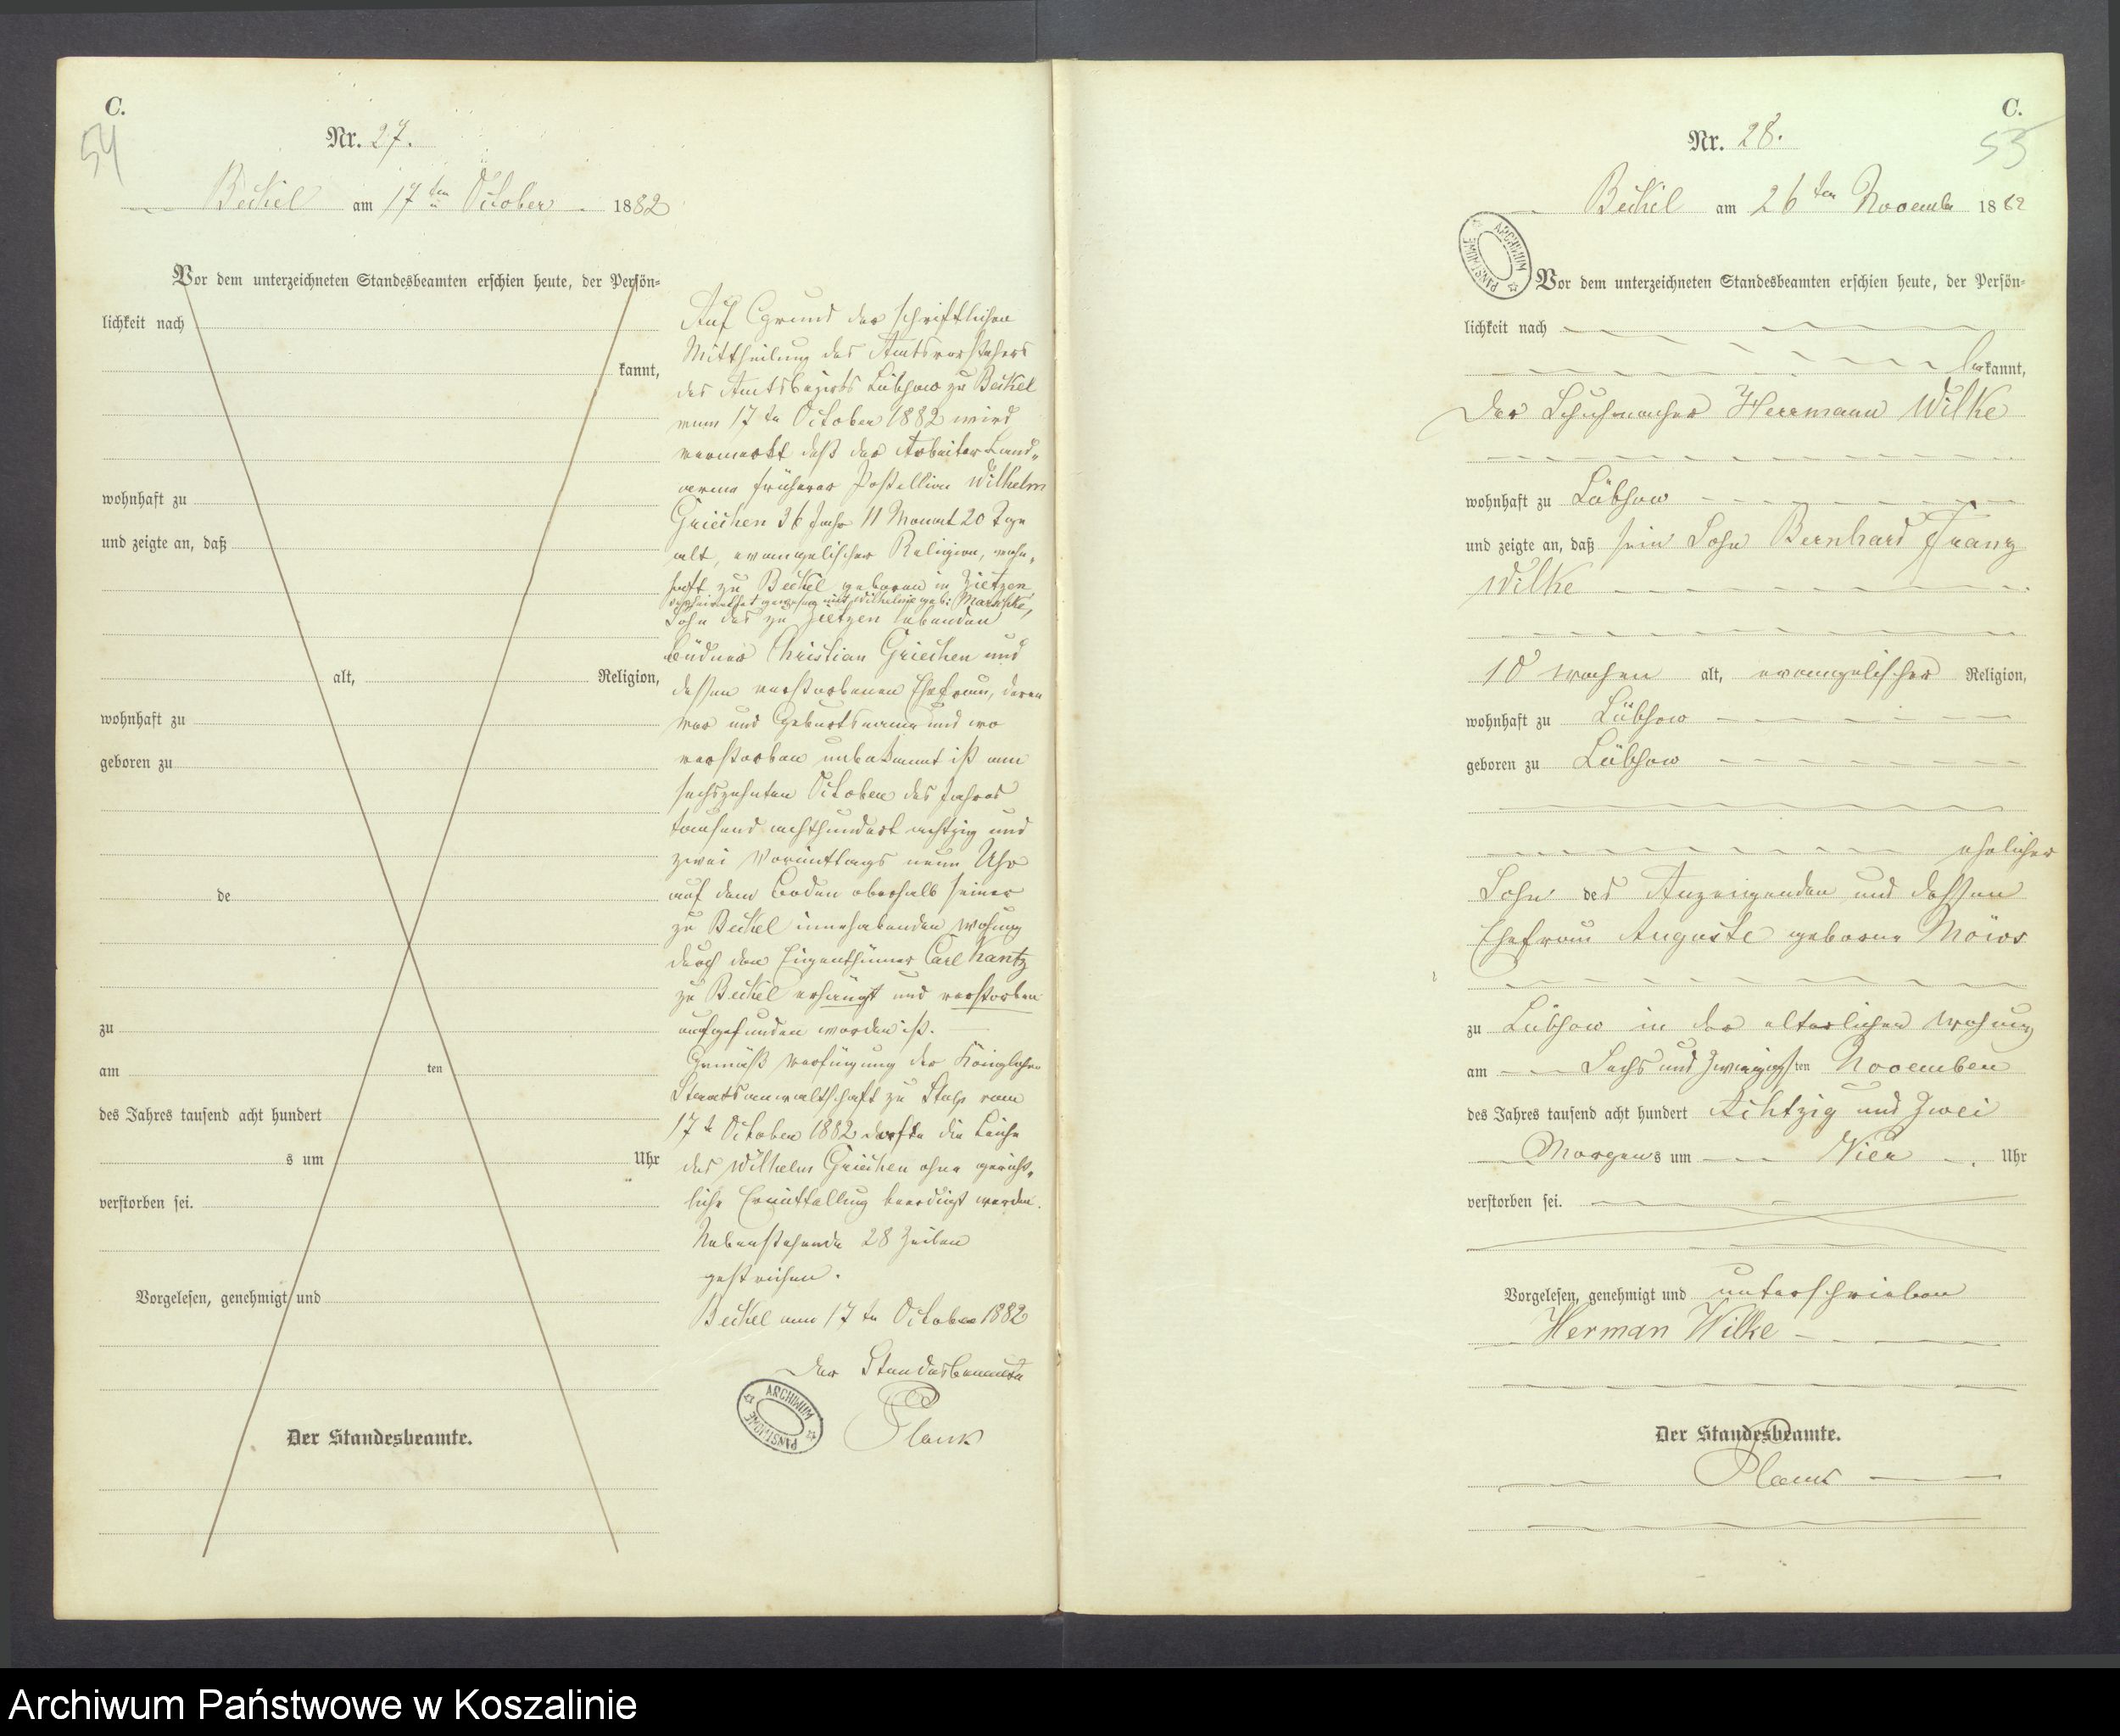 C.
54
Nr. 27.
Beckel am 17ten October 1882
Vor dem unterzeichneten Standesbeamten erschien heute, der Persön-
lichkeit nach
kannt,
wohnhaft zu
und zeigte an, daß
alt, Religion,
wohnhaft zu
geboren zu
de
zu
am ten
des Jahres tausend acht hundert
s um Uhr
verstorben sei.
Vorgelesen, genehmigt und
Der Standesbeamte.
Auf Grund der schriftlichen
Mittheilung des Amtsvorstehers
des Amtsbezirks Lübzow zu Beckel
vom 17 ten October 1882 wird
vermerkt daß der Arbeiter Land-
arme früherer Postillion Wilhelm
Griechen 36 Jahr 11 Monat 20 Tage
alt, evangelischer Religion, wohn-
haft zu Beckel geboren in Zietzen
verheirathet gewesen mit Wilhelmine geb:
Sohn des zu Zietzen lebenden
Büdner Christian Griechen und
dessen verstorbenen Ehefrau, deren
Vor und Geburtsname und wo
verstorben unbekannt ist am
sechszehnten October des Jahres
tausend achthundert achtzig und
zwei Vormittags neun Uhr
auf dem Boden oberhalb seiner
zu Beckel innehabenden Wohnung
durch den Eigenthümer Carl Kantz
zu Beckel erhängt und verstorben
aufgefunden worden ist.
Gemäß Verfügung der Königlichen
Staatsanwaltschaft zu Stolp vom
17t October 1882 durfte die Leiche
des Wilhelm Griechen ohne gericht-
liche Ermittellung beerdigt werden.
Nebenstehende 28 Zeilen
gestrichen.
Beckel am 17 ten October 1882
Der Standesbeamte
Plank
ARCHIWUM PAŃSTWOWE
C.
55
Nr. 28.
Beckel am 26ten November 1882
ARCHIWUM PAŃSTWOWE
Vor dem unterzeichneten Standesbeamten erschien heute, der Persön-
lichkeit nach
bekannt,
der Schuhmacher Herrmann Wilke
wohnhaft zu Lübzow
und zeigte an, daß sein Sohn Bernhard Franz
Wilke
10 Wochen alt, evangelischer Religion,
wohnhaft zu Lübzow
geboren zu Lübzow
ehelicher
Sohn des Anzeigenden und dessen
Ehefrau Auguste geborne Möws
zu Lübzow in der elterlichen Wohnung
am Sechs und Zwanzigsten November
des Jahres tausend acht hundert Achtzig und Zwei
Morgens um Vier Uhr
verstorben sei.
Vorgelesen, genehmigt und unterschrieben
Herman Wilke
Der Standesbeamte.
Plank
Archiwum Państwowe w Koszalinie